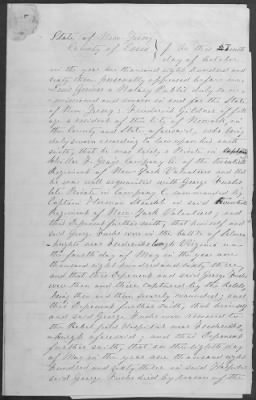 State of New Jersey
County of Essex } On this
day of October
in the year one thousand eight hundred and
sixty personally appeared before me
a Notary Public duly
and sworn in and for the State
of New Jersey
a resident of the City of Newark, in
the County and State aforesaid, who being
duly sworn according to law upon his oath
saith, that he was lately a Private in
Company of the twentieth
Regiment of New York Volunteers and that
he was well acquainted with George Fuchs
late Private in Company commanded by
Captain Herman in said
Regiment of New York Volunteers; and
this Deponent further saith, that himself and
said George Fuchs were in the battle of
near Fredericksburgh Virginia on
the fourth day of May in the year one
thousand eight hundred and sixty three,
and that this Deponent and said George Fuchs
were then and there captured by the Rebels,
being then and there severely wounded; and
this Deponent further saith, that himself
and said George Fuchs were removed to
the Rebel field Hospital near Fredericks-
burgh aforesaid; and this Deponent
further saith, that on the eighth day
of May in the year one thousand eight
hundred and sixty three in said Hospital
said George Fuchs died by reason of the